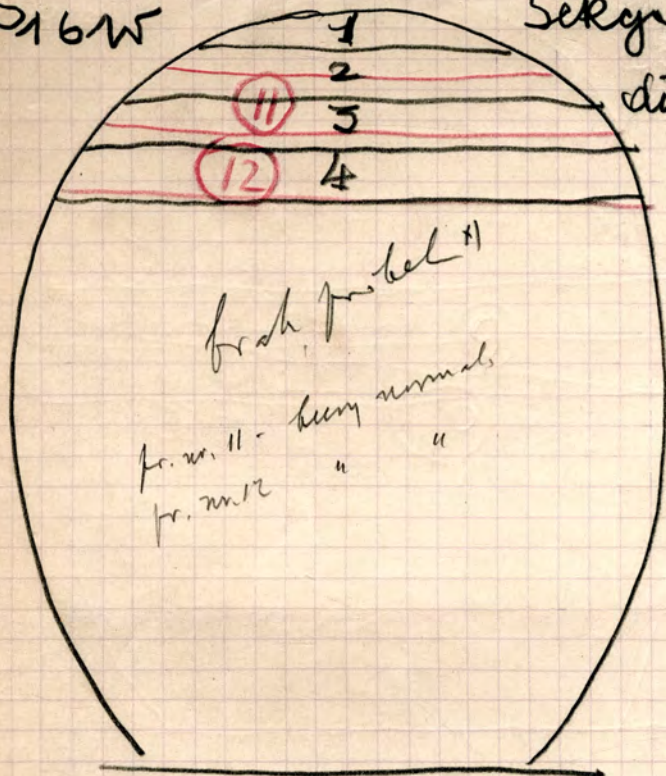 P16W
Sekcj
di
1
2
11
3
12
4
brak próbek *)
pr. nr. 11 - barw normal.
pr. nr. 12 " "